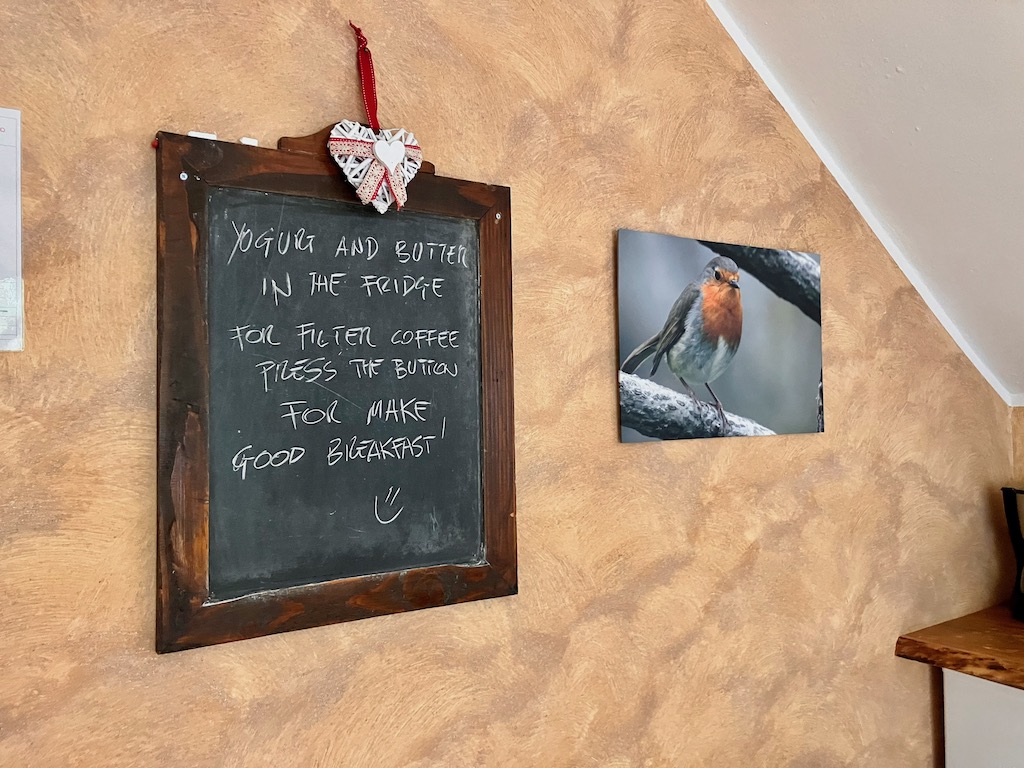 YOGURT AND BUTTER
IN THE FRIDGE
FOR FILTER COFFEE
PRESS THE BUTTON
FOR MAKE
GOOD BREAKFAST!